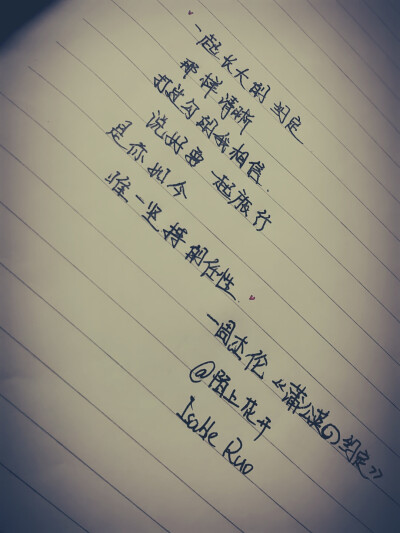 一起长大的约定
那样清晰
打过勾的我相信
说好要一起旅行
是你如今
唯一坚持的任性
—周杰伦《蒲公英の约定》
@陌上花开
Isaße Ruo